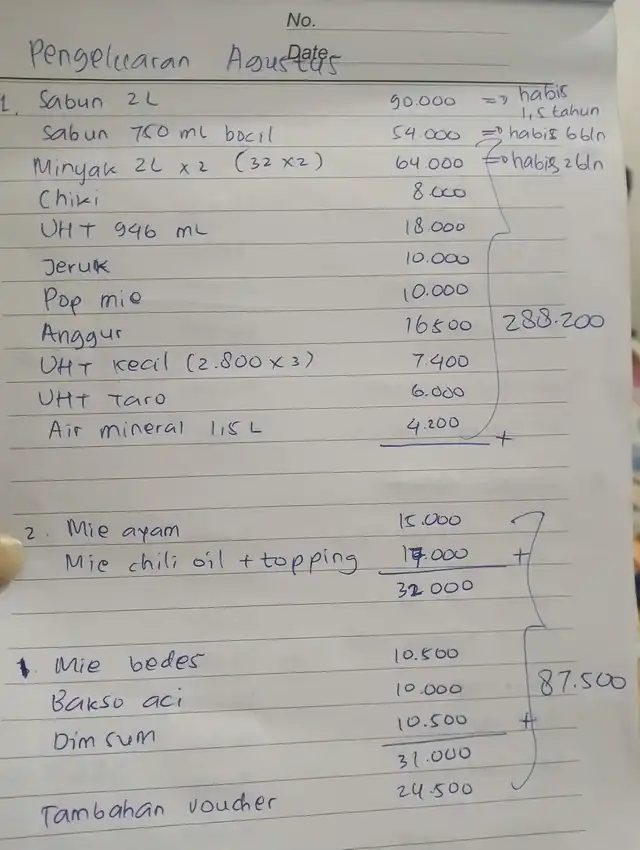 No.
Date
Pengeluaran Agustus
1. Sabun 2L 90.000 => habis 1,5 tahun
Sabun 750 mL bocil 54.000 => habis 6 bln
Minyak 2L x 2 (32 x 2) 64.000 => habis 2 bln
Chiki 8.000
UHT 946 mL 18.000
Jeruk 10.000
Pop mie 10.000
Anggur 16.500 288.200
UHT kecil (2.800 x 3) 7.400
UHT Taro 6.000
Air mineral 1,5 L 4.200 +
2. Mie ayam 15.000
Mie chili oil + topping 17.000 +
32.000
1. Mie bedes 10.500
Bakso aci 10.000 87.500
Dimsum 10.500 +
31.000
Tambahan voucher 24.500